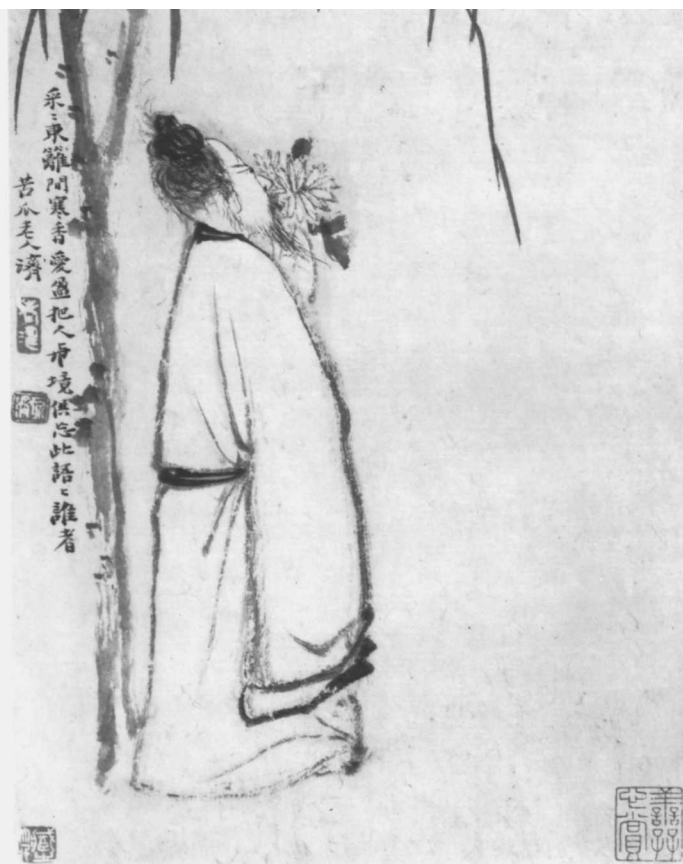 采〻東籬間寒香愛盈把人與境俱忘此語〻誰者
苦瓜老人濟